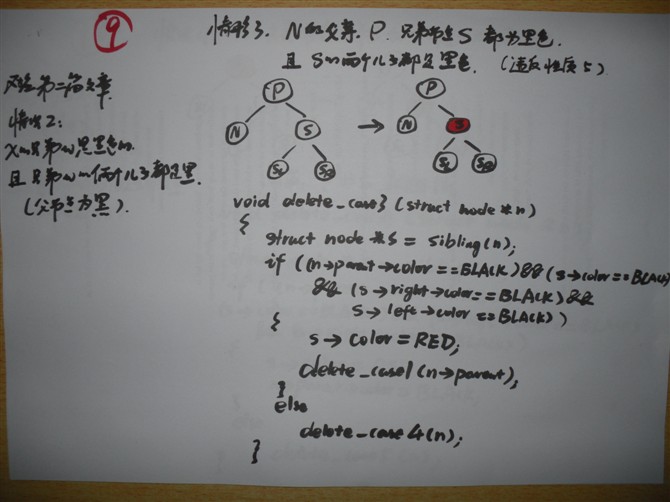 9
情形3. N的父亲. P. 兄弟节点 S 都为黑色.
且 S的两个儿子都是黑色. (违反性质5).
对应第二篇文章.
情况2:
X的兄弟w是黑色的.
且兄弟w的俩个儿子都是黑.
(父节点为黑).
P
N
S
SL
SR
→
P
N
S
SL
SR
void delete_case3 (struct node *n)
{
struct node *s = sibling(n);
if ((n→parent→color==BLACK)&&(s→color==BLACK)
&& (s→right→color==BLACK)&&
s→left→color==BLACK))
{
s→color=RED;
delete_case1(n→parent);
}
else
delete_case4(n);
}